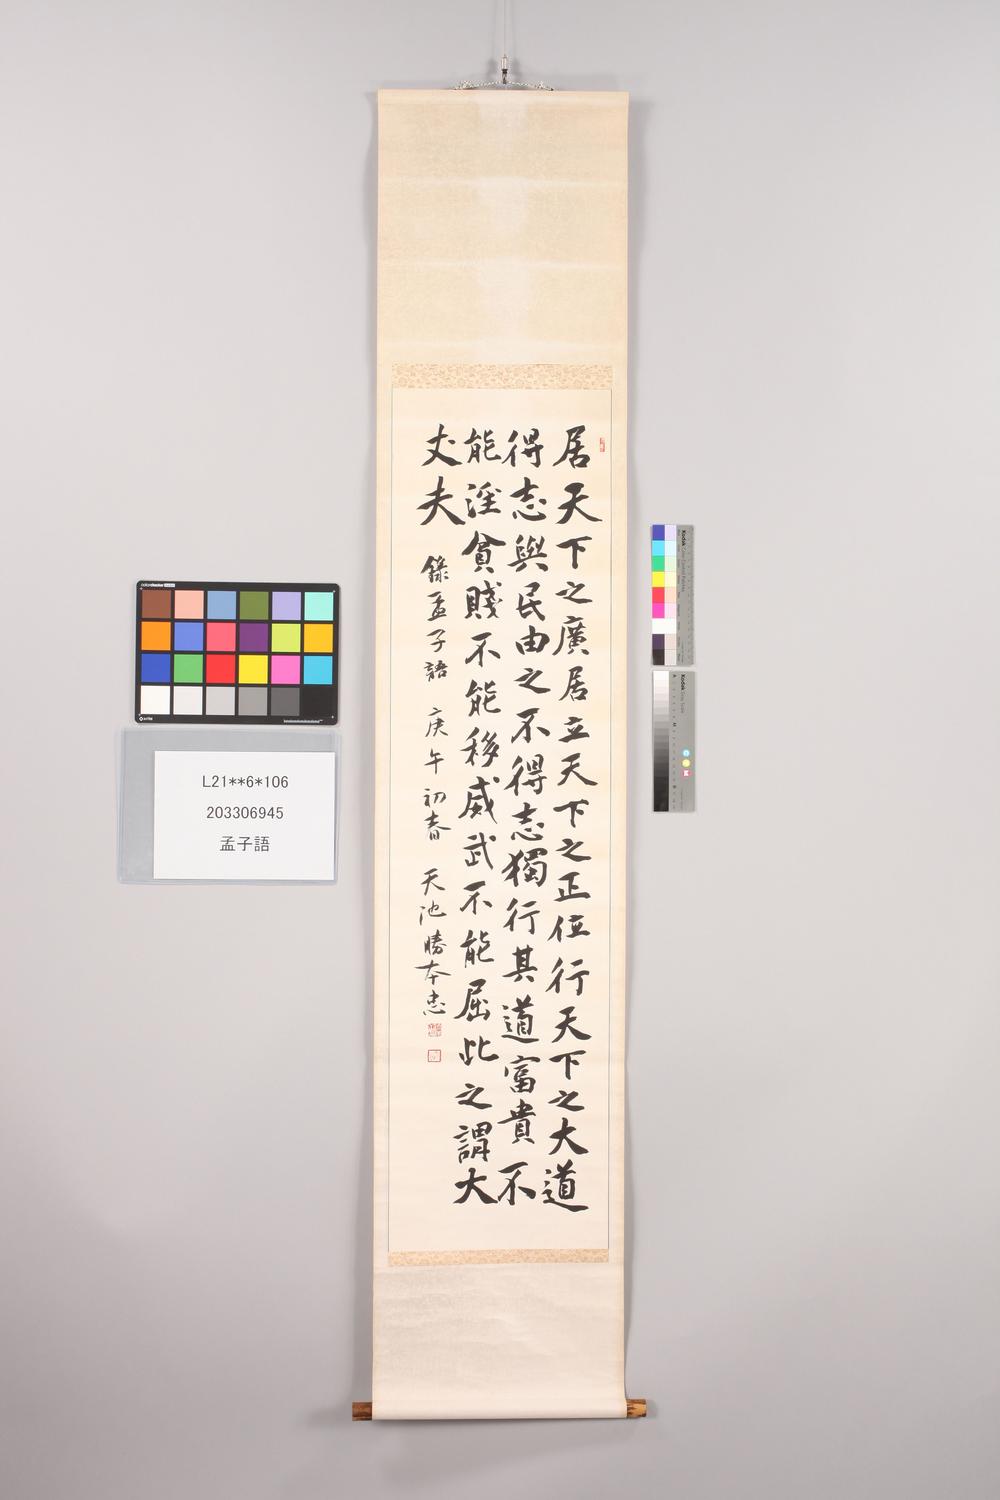 居天下之廣居立天下之正位行天下之大道
得志與民由之不得志獨行其道富貴不
能淫貧賤不能移威武不能屈此之謂大
丈夫
錄孟子語 庚午初春 天池勝本忠
L21**6*106
203306945
孟子語
Kodak
Kodak